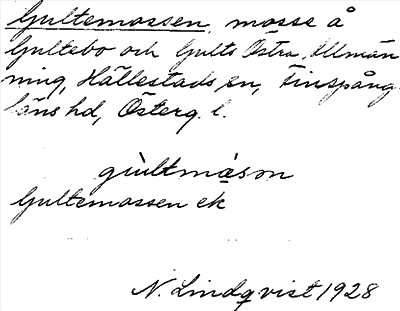 Gultemossen, mosse å
Gultebo och Gults Östra Allmän
ning, Hällestads sn, Finspånga
läns hd, Österg. l.
giùltmå̀son
Gultemossen ek
N. Lindqvist 1928